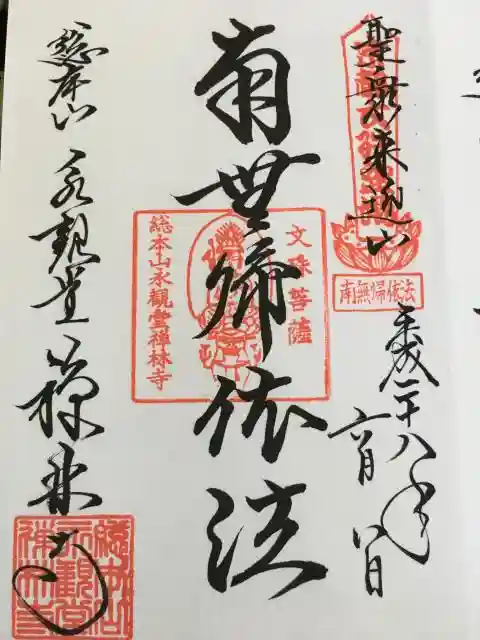 聖衆来迎山
南無帰依法
平成二十八年
六月八日
南無帰依法
文殊菩薩
総本山永觀堂禅林寺
總本山 永観堂 禅林寺